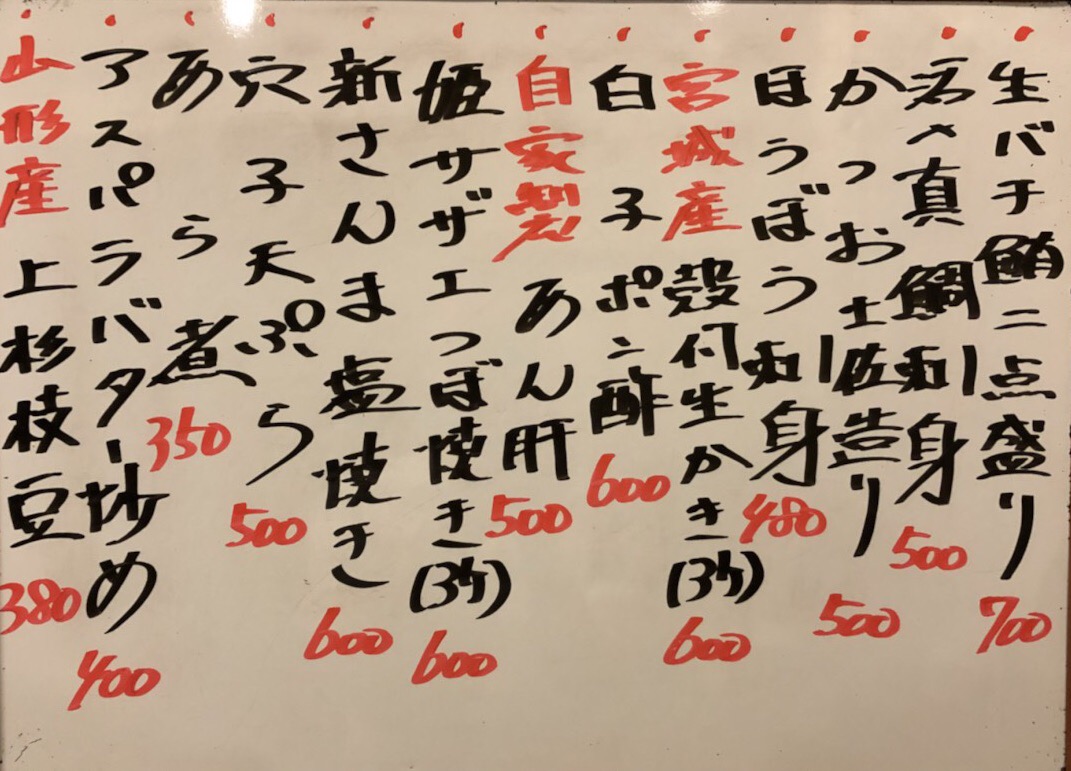 生バチ鮪二点盛り 700
活〆真鯛刺身 500
かつお土佐造り 500
ほうぼう刺身 480
宮城産 殻付生かき(3ケ) 600
白子ポン酢 600
自家製 あん肝 500
姫サザエつぼ焼き(3ケ) 600
新さんま塩焼き 600
穴子天ぷら 500
あら煮 350
アスパラバター炒め 400
山形産 上杉枝豆 380